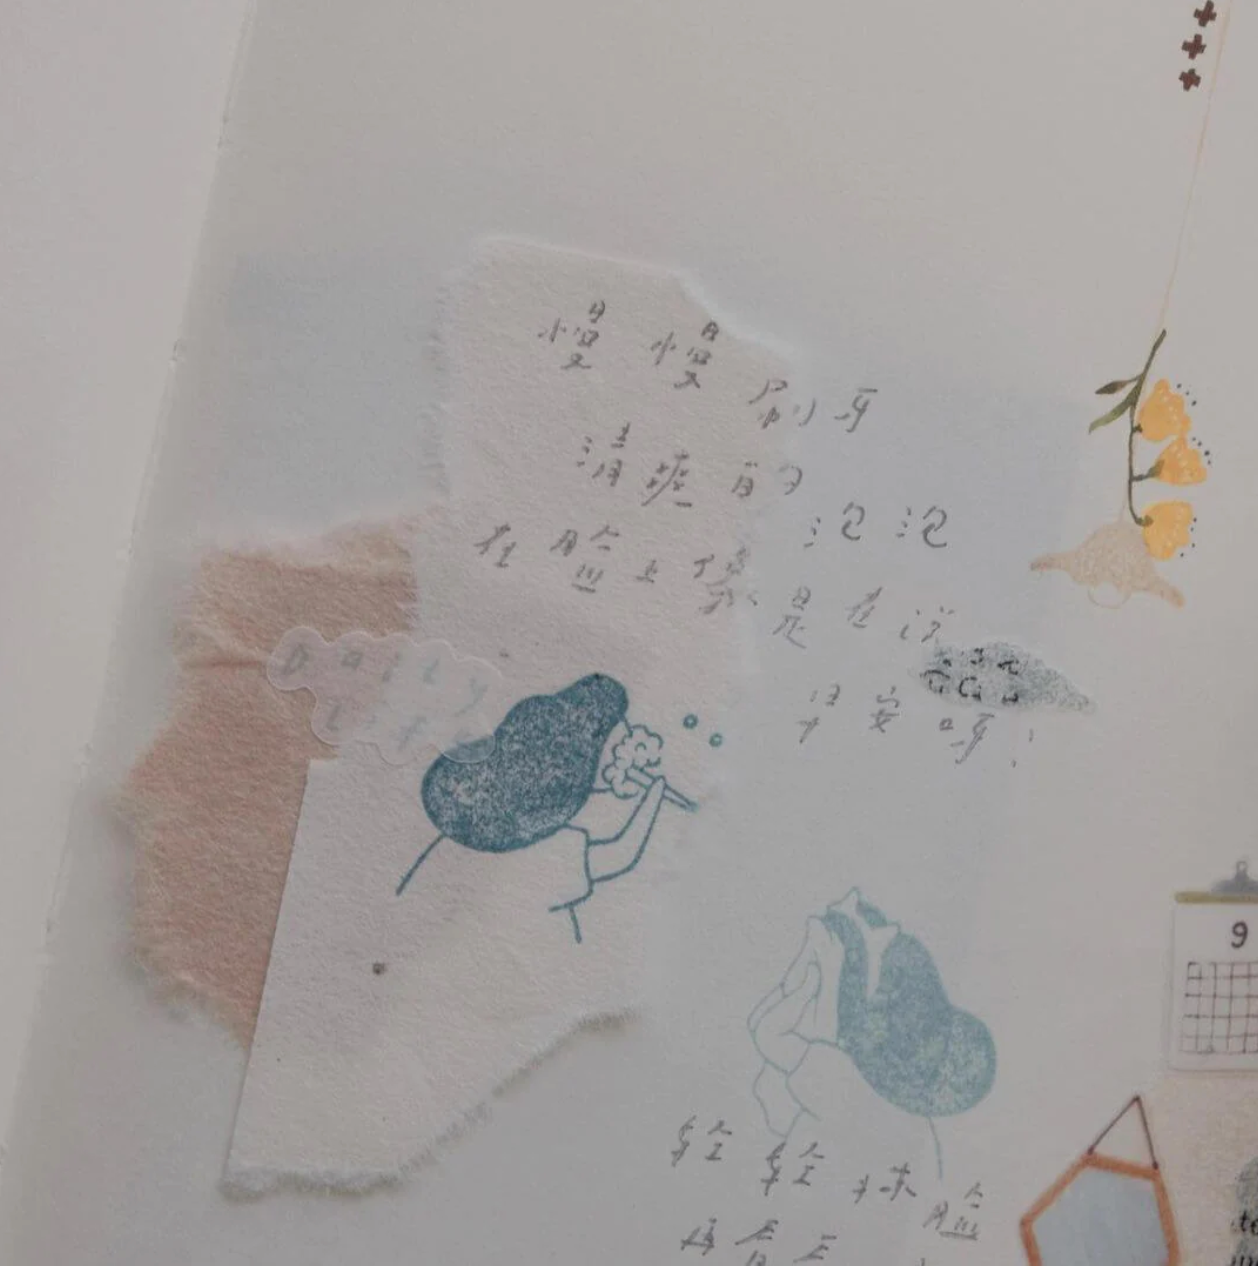 慢慢刷牙
清爽的泡泡
在脸上像是在浮
早安呀!
Daily
Life
9
轻轻抹脸